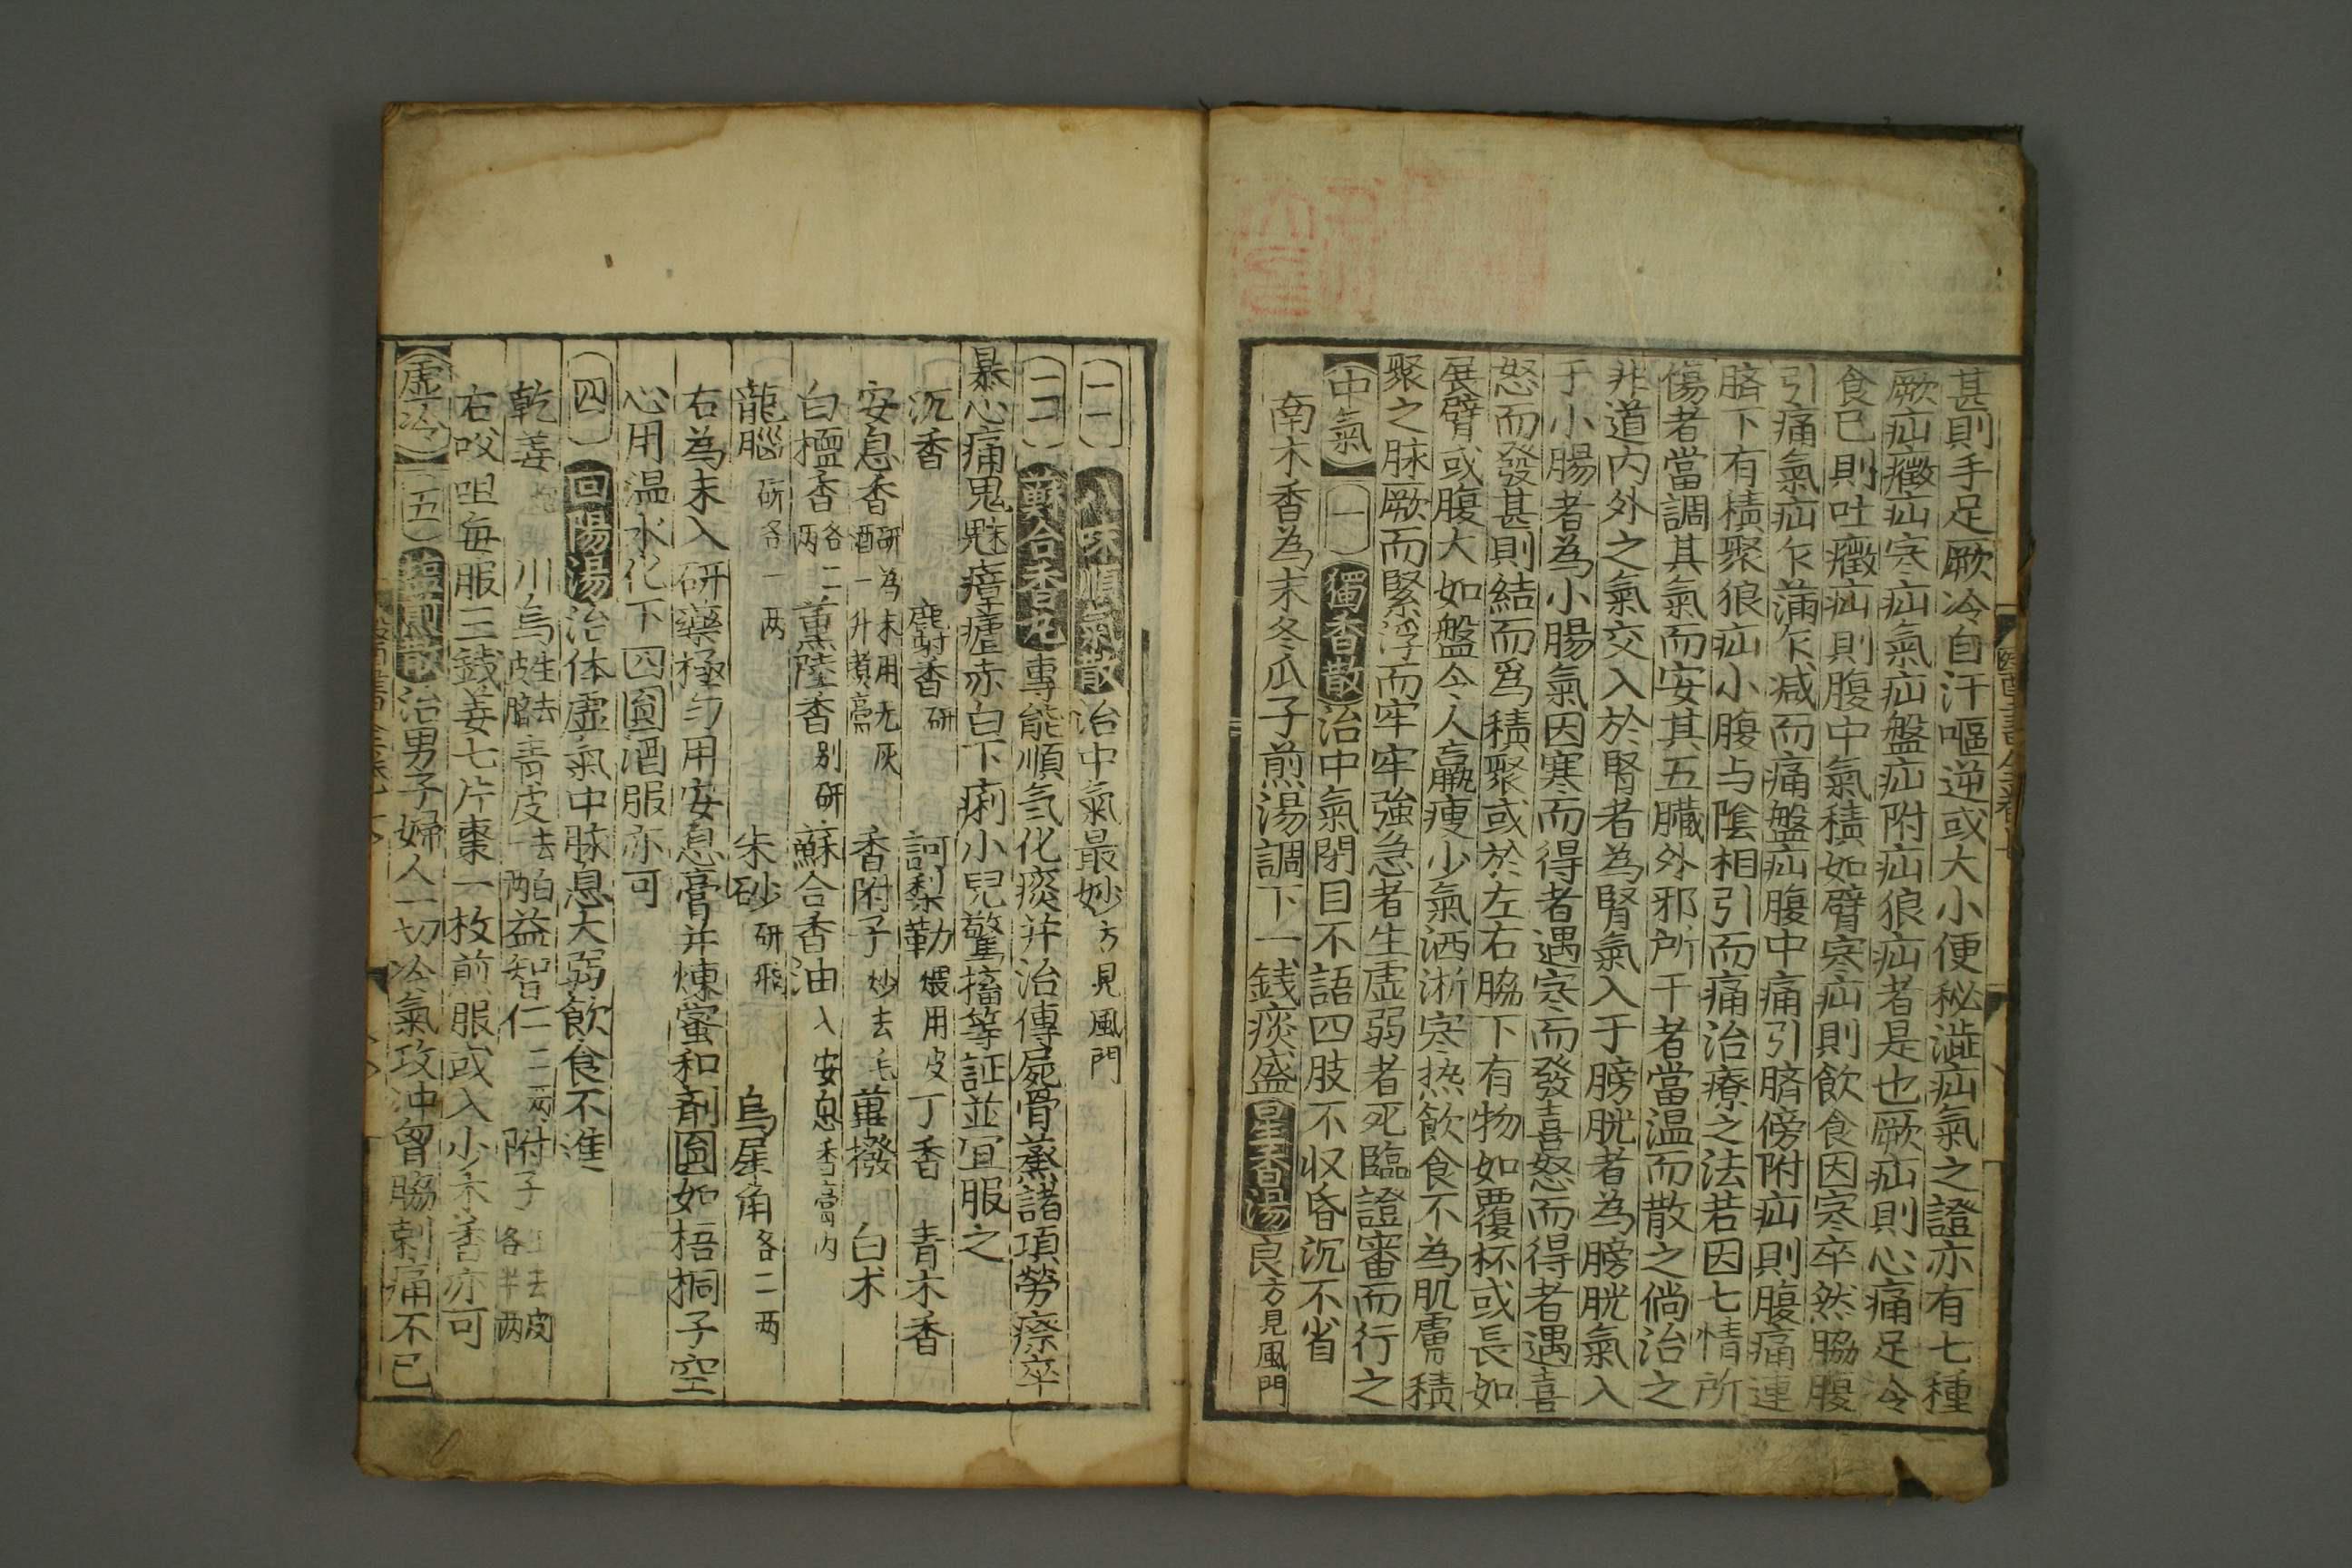 甚則手足厥冷自汗嘔逆或大小便秘澁疝氣之證亦有七種
厥疝癥疝寒疝氣疝盤疝附疝狼疝者是也厥疝則心痛足冷
食已則吐癥疝則腹中氣積如臂寒疝則飲食因寒卒然脇腹
引痛氣疝乍滿乍减而痛盤疝腹中痛引臍傍附疝則腹痛連
臍下有積聚狼疝小腹与隂相引而痛治療之法若因七情所
傷者當調其氣而安其五臓外邪所干者當温而散之倘治之
非道内外之氣交入於腎者為腎氣入于膀胱者為膀胱氣入
于小腸者為小腸氣因寒而得者遇寒而發喜怒而得者遇喜
怒而發甚則結而爲積聚或於左右脇下有物如覆杯或長如
展臂或腹大如盤令人羸瘦少氣洒淅寒热飲食不為肌膚積
聚之脉厥而緊浮而牢牢強急者生虚弱者死臨證審而行之
中氣 一 獨香散 治中氣閉目不語四肢不収昏沉不省
南木香為末冬瓜子煎湯調下一銭痰盛 星香湯 良方見風門
二 八味順氣散 治中氣最妙方見風門
三 蘇合香元 專能順气化痰并治傳屍骨蒸諸項勞瘵卒
暴心痛鬼魅瘴瘧赤白下痢小兒驚搐等証並宜服之
沉香 麝香研 訶梨勒煨用皮 丁香 青木香
安息香研為末用无灰酒一升煮膏 香附子炒去毛 蓽撥 白术
白檀香各二两 薫陸香别研 蘇合香油入安息香膏内
龍腦研各一两 朱砂研飛 烏犀角各二两
右為末入研藥極匀用安息膏并煉蜜和剤圓如梧桐子空
心用温水化下四圓酒服亦可
四 回陽湯 治体虚氣中脉息大弱飲食不進
乾姜 川烏 青皮去白 益智仁二两 附子去皮各半两
右㕮咀每服三銭姜七片棗一枚煎服或入少木香亦可
虚冷 五 塩煎散 治男子婦人一切冷氣攻冲胷脇刺痛不已